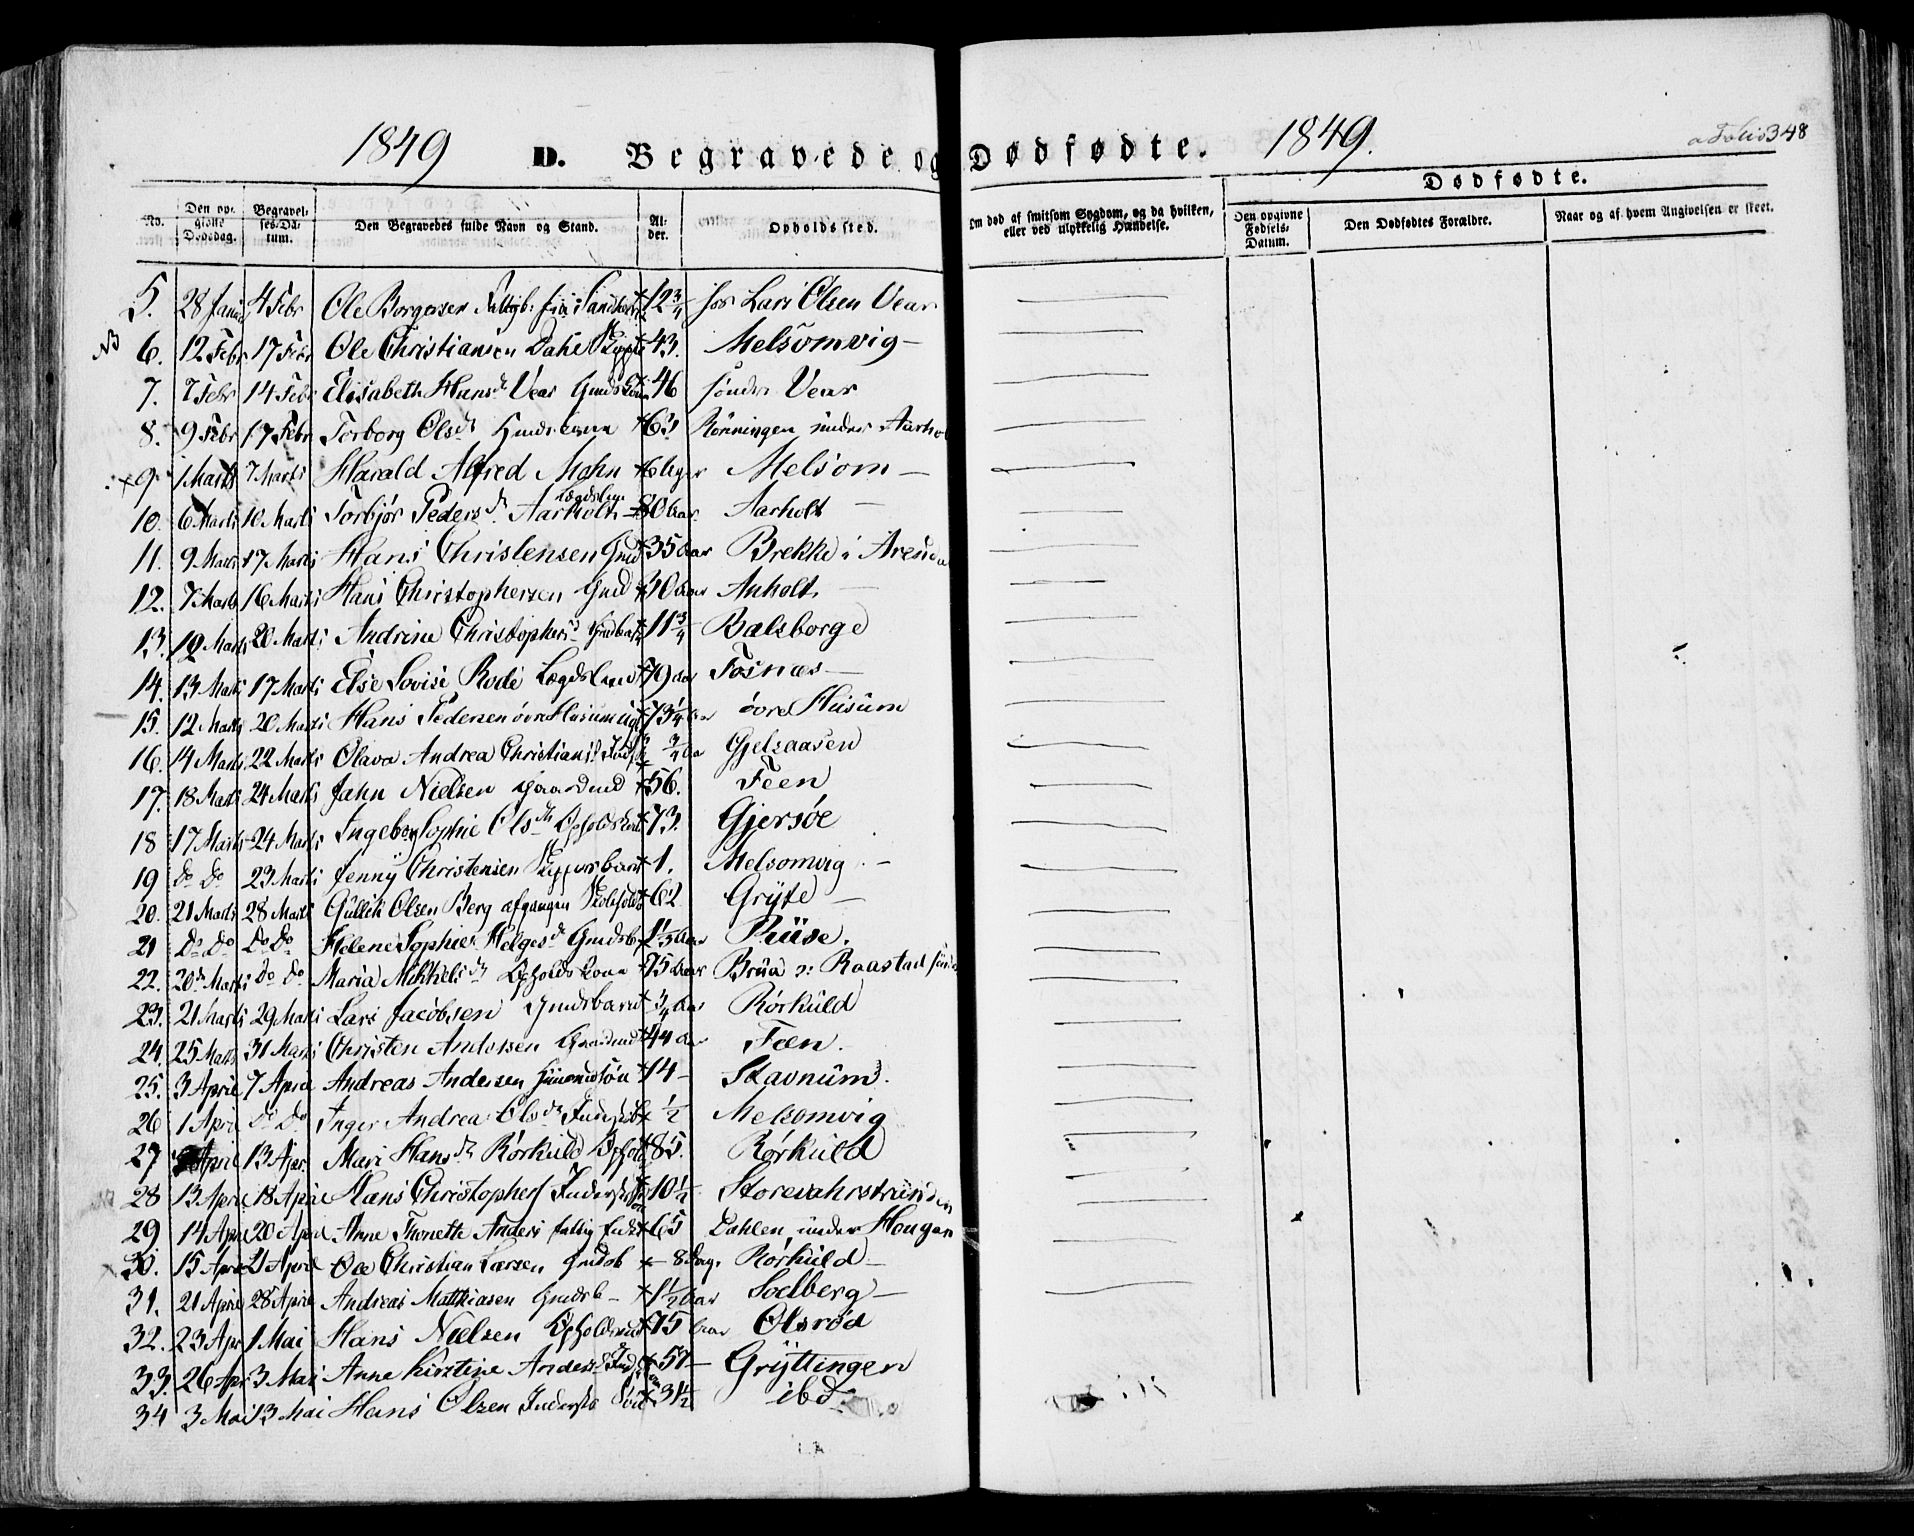 1849 D. Begravede og Dødfødte. 1849. Folio 348
Dødfødte.
No. Den opgivne Dødsdag. Begravelses-Datum. Den Begravedes fulde Navn og Stand. Alder. Opholdssted. Om død af smitsom Sygdom, og da hvilken, eller ved ulykkelig Hændelse. Den opgivne Fødsels-Datum. Den Dødfødtes Forældre. Naar og af hvem Angivelsen er skeet.
5. 28 Janu 4 Febr Ole Borgersen fra 12 3/4 hos Lars Olsen Vear
NB 6. 12 Febr 17 Febr Ole Christiansen Dahl 43. Melsomvig
7. 7 Febr 14 Febr Elisabeth Hansd Vear Gmds Kone 46 søndre Vear
8. 9 Febr 17 Febr Torborg Olsdr 63 Rönningen under Aarho
9 1 Marts 7 Marts Harald Alfred Mohn 6 Uger Melsom
10. 6 Marts 10 Marts Torbjør Pedersdr Aarholt Lægdslem 80 aar Aarholt
11. 9 Marts 17 Marts Hans Christensen Gmd 35 aar Brekke i Arenda
12. 7 Marts 16 Marts Hans Christophersen Gmd 30 aar Anholt
13. 12 Marts 20 Marts Andrine Christophersd Gmdbarn 11 3/4 Balsborge
14. 13 Marts 17 Marts Else Lovise Rode Lægdslem 79 aar Fosnæs
15. 12 Marts 20 Marts Hans Pedersen övre Husum 73 1/4 aar övre Husum
16. 14 Marts 22 Marts Olava Andrea Christiansd 3/4 aar Gjelsaasen
17. 18 Marts 24 Marts Jahn Nielsen Gaardmd 56. Feen
18 17 Marts 24 Marts Ingeborg Sophie Olsdr Opholdskone 73. Gjersøe
19 do do 23 Marts Jenny Christensen Skippersbarn 1. Melsomvig
20. 21 Marts 28 Marts Gullik Olsen Berg afgangen Skoleholder 62 Gryte
21 Do Do Do Do Helene Sophie Helgesdr Gmdsb 1 1/3 aar Ruse.
22. 20de Marts do do Maria Mikkelsdr Opholdskone 75 aar Brua Raastad
23. 21 Marts 29 Marts Lars Jacobsen Gmdsbarn 3/4 aar Rörkuld
24. 25 Marts 31 Marts Christen Andersen Gaardmd 44 aar Fæn.
25. 3 April 7 April Andreas Andersen 14 Stavnum.
26 1 April do do Inger Andrea Olsdr 1/2 Melsomvig
27 April 13 Apr. Mari Hansdr Rörkuld 85. Rørkuld
28 13 April 18 April Hans Christophers 10 1/2 Storevahrstranden
29 14 April 20 April Anne Thonette Anders fattig 65 Dahlen under Hougan
30. 15 April 21 April Ole Christian Larsen Gmdsb 8 Dag. Rörkuld
31. 21 April 28 April Andreas Mathiasen Gmdsb 1 1/2 aar Solberg
32. 23 Apr 1 Mai Hans Nielsen Opholdsmd 75 aar Olsrød
33. 26 Apr 3 Mai Anne Kirstine Andersd 57 Gryttingen
34 3 Mai 13 Mai Hans Olsen Inderste Søn 3 1/2 ibd.